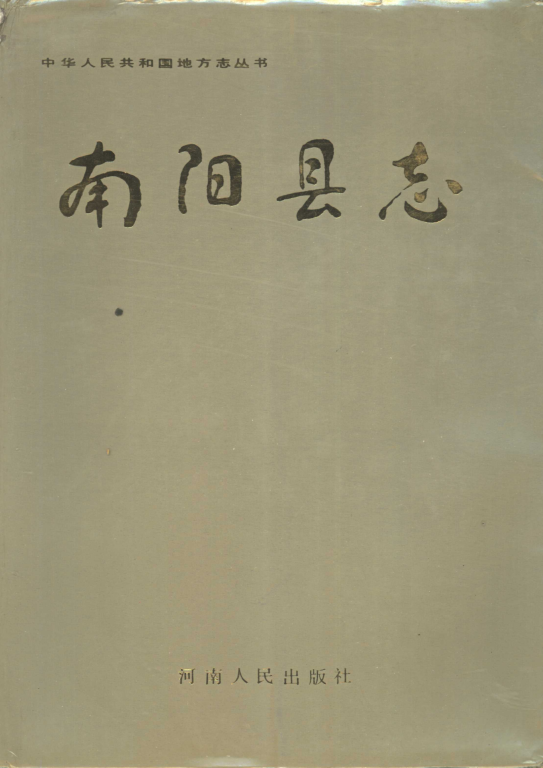 中华人民共和国地方志丛书
南阳县志
河南人民出版社